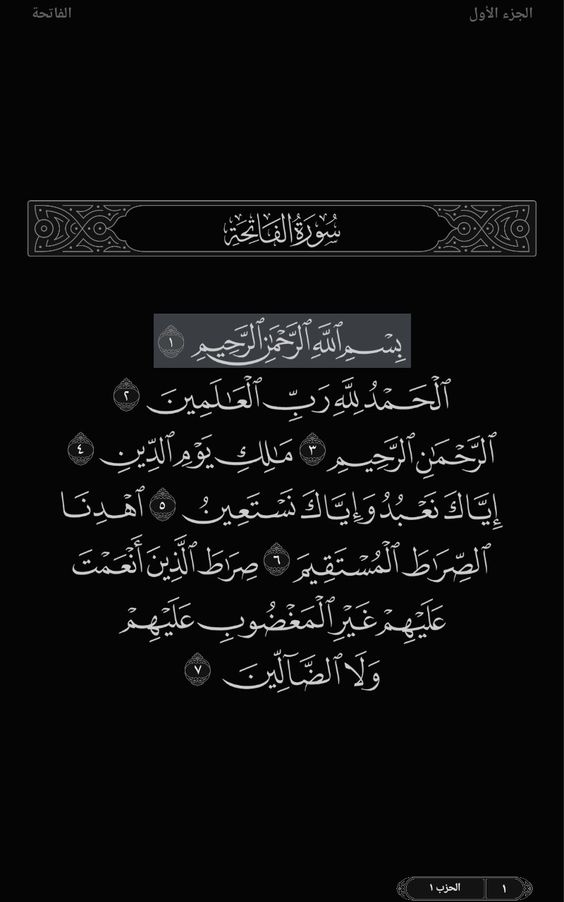 الجزء الأول
الفاتحة
سُورَةُ الفَاتِحَة
بِسْمِ ٱللَّهِ ٱلرَّحْمَٰنِ ٱلرَّحِيمِ ١
ٱلْحَمْدُ لِلَّهِ رَبِّ ٱلْعَٰلَمِينَ ٢
ٱلرَّحْمَٰنِ ٱلرَّحِيمِ ٣ مَٰلِكِ يَوْمِ ٱلدِّينِ ٤
إِيَّاكَ نَعْبُدُ وَإِيَّاكَ نَسْتَعِينُ ٥ ٱهْدِنَا
ٱلصِّرَٰطَ ٱلْمُسْتَقِيمَ ٦ صِرَٰطَ ٱلَّذِينَ أَنْعَمْتَ
عَلَيْهِمْ غَيْرِ ٱلْمَغْضُوبِ عَلَيْهِمْ
وَلَا ٱلضَّآلِّينَ ٧
١
الحزب ١